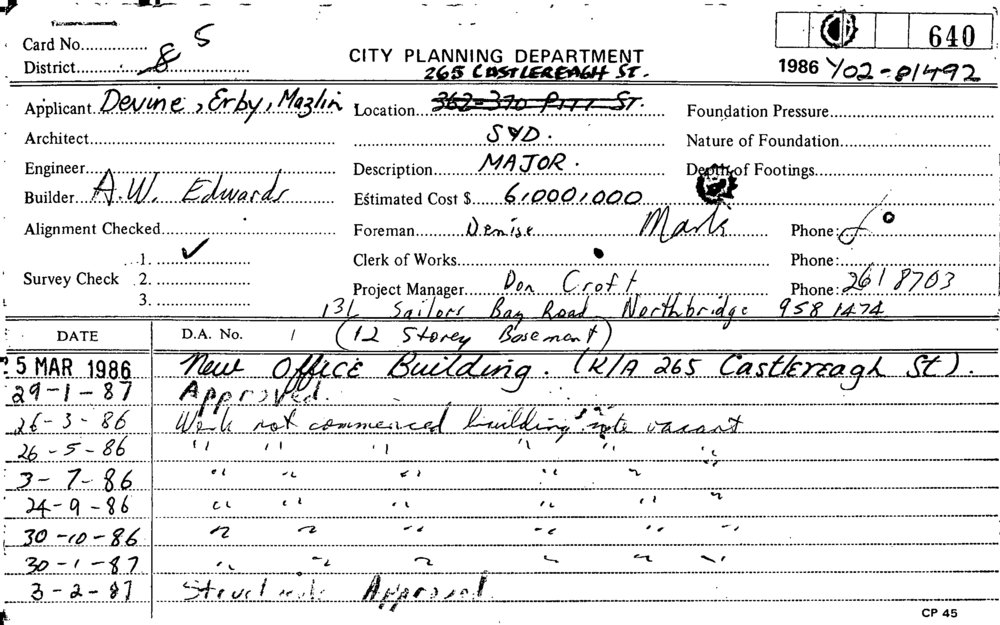 Card No. 5
District 8
CITY PLANNING DEPARTMENT
265 CASTLEREAGH ST.
640
1986 Y02-01492
Applicant Devine, Erby, Mazlin
Location 362-370 PITT ST.
Foundation Pressure
Architect
SYD.
Nature of Foundation
Engineer
Description MAJOR.
Depth of Footings
Builder A.W. Edwards
Estimated Cost $ 6,000,000
Alignment Checked
Foreman Denise Mark
Phone:
Survey Check 1. ✓
2.
3.
Clerk of Works
Phone:
Project Manager Don Croft
Phone: 261 8703
13L Sailors Bay Road Northbridge 958 1474
DATE D.A. No. / (12 Storey Basement)
5 MAR 1986 New Office Building. (K/A 265 Castlereagh St).
29-1-87 Approved.
26-3-86 Work not commenced building site vacant
26-5-86 " " " " " "
3-7-86 " " " " " "
24-9-86 " " " " " "
30-10-86 " " " " " "
30-1-87 " " " " "
3-2-87 Approved
CP 45